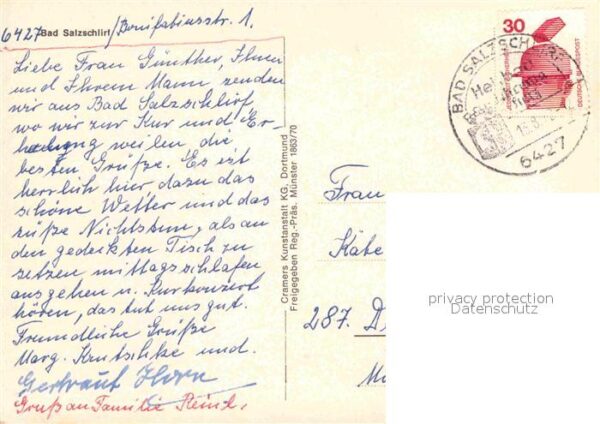 6427 Bad Salzschlirf / Bonifatiusstr. 1.
Liebe Frau Günther, Ihnen
und Ihrem Mann senden
wir aus Bad Salzschlirf
wo wir zur Kur und Er-
holung weilen, die
besten Grüße. Es ist
herrlich hier, dazu das
schöne Wetter und das
süße Nichtstun, als an
den gedeckten Tisch zu
setzen mittagsschlafen
ausgehen u. Kurkonzert
hören, das tut uns gut.
Freundliche Grüße
Marg. und.
Gertraut Horn
Gruß an Familie
Cramers Kunstanstalt KG, Dortmund
Freigegeben Reg.-Präs. Münster 1863/70
30
DEUTSCHE BUNDESPOST
BAD SALZSCHLIRF
6427
Frau
Käte
287. D
privacy protection
Datenschutz